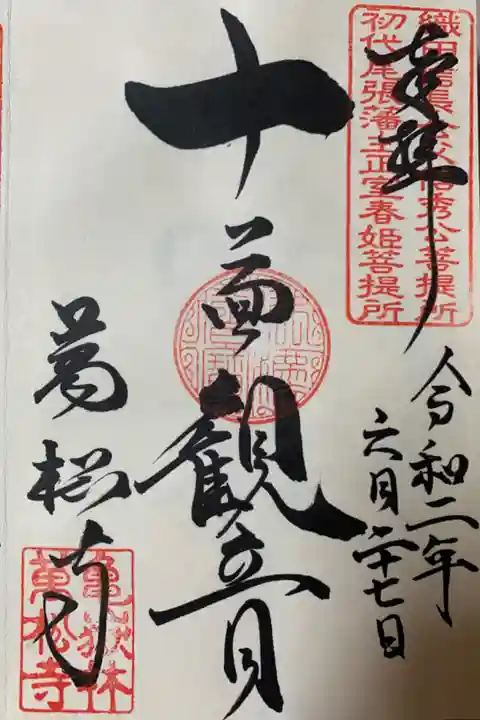 織田信長公父信秀公菩提所
初代尾張藩主正室春姫菩提所
奉拝
令和二年
六月二十七日
十一面観音
萬松寺
亀嶽林
萬松寺